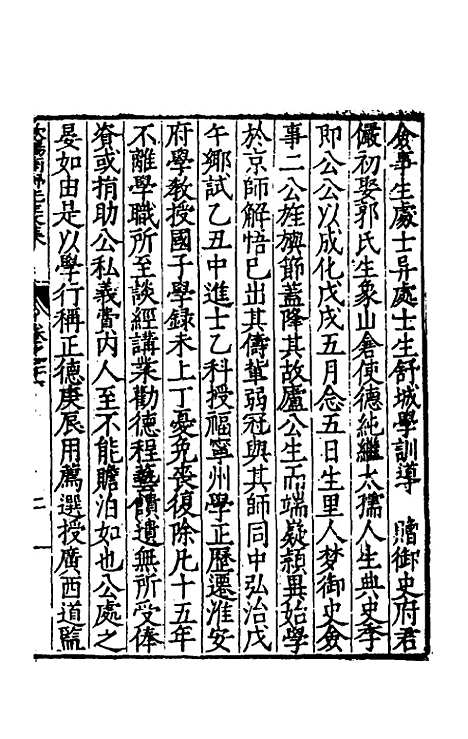 僉事生處士异處士生舒城學訓導　贈御史府君
儼初娶郭氏生象山倉使德純繼太孺人生典史季
即公公以成化戊戌五月念五日生里人梦御史僉
事二公旌旟節蓋降其故廬公生而端疑頴異始學
於京師解悟已出其儔軰弱冠與其師同中弘治戊
午鄉試乙丑中進士乙科授福寧州學正歷遷淮安
府學教授國子學録未上丁憂免喪復除凡十五年
不離學職所至談經講業勸德程藝饋遺無所受俸
資或捐助公私義嘗内人至不能贍泊如也公處之
晏如由是以學行稱正德庚辰用薦選授廣西道監
二